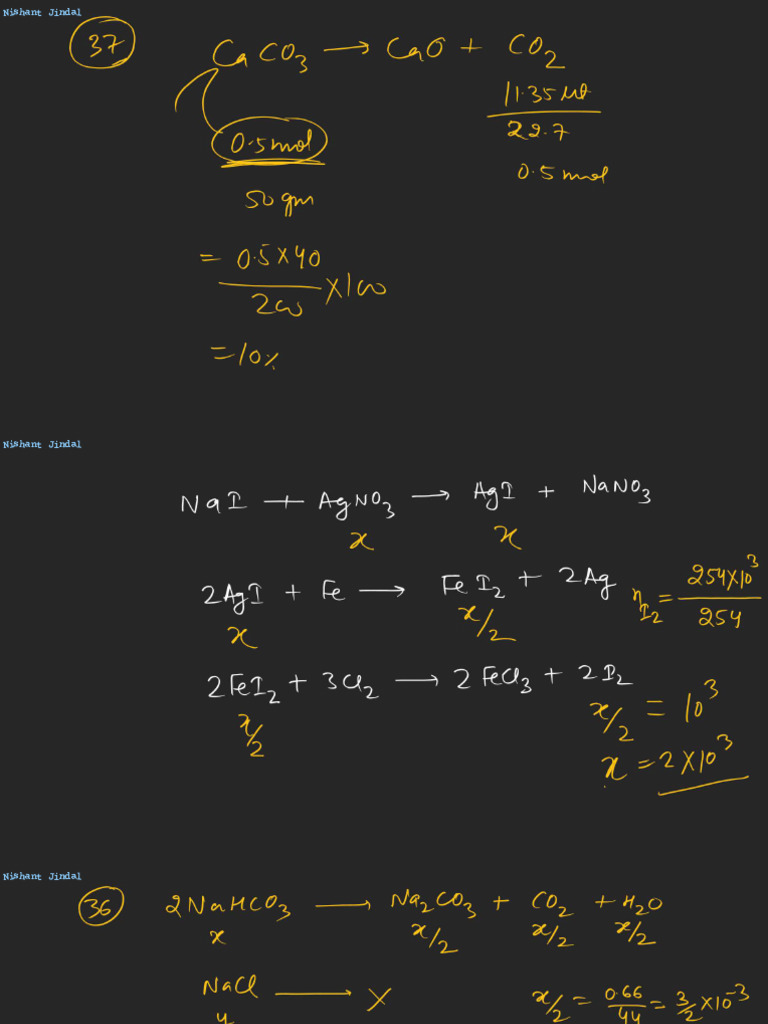 Nishant Jindal
37
CaCO3 → CaO + CO2
11.35 lit
22.7
0.5 mol
0.5 mol
50 gm
= 0.5×40
200
×100
= 10%
Nishant Jindal
NaI + AgNO3 → AgI + NaNO3
x x
2AgI + Fe → FeI2 + 2Ag
x x/2
ηI2 = 254×10³
254
2FeI2 + 3Cl2 → 2FeCl3 + 2I2
x/2
x/2 = 10³
x = 2×10³
Nishant Jindal
36
2NaHCO3 → Na2CO3 + CO2 + H2O
x x/2 x/2 x/2
NaCl → X
y
x/2 = 0.66/44 = 3/2 ×10⁻³